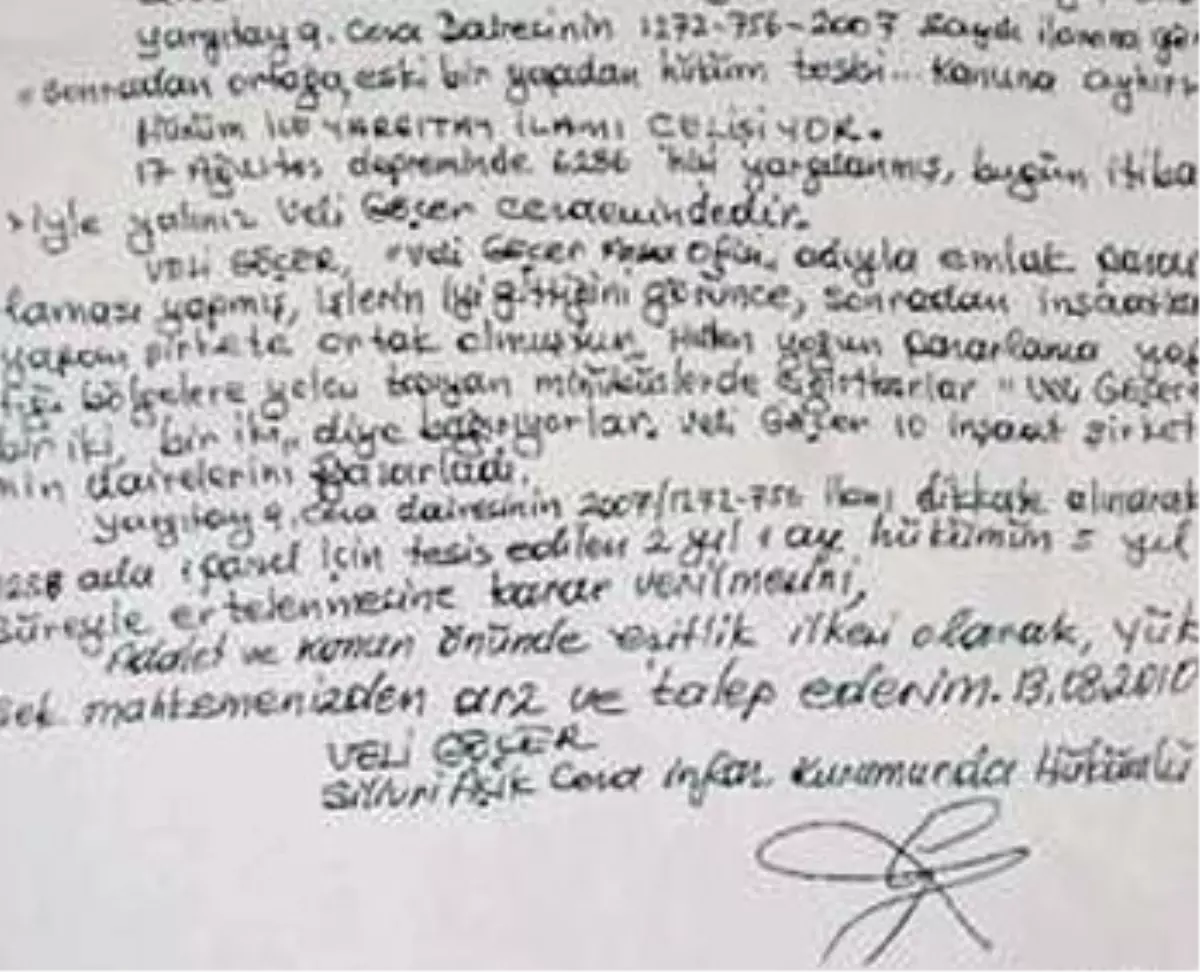 Yargıtay 9. Ceza Dairesinin 1272-756-2007 Sayılı ilamına gö
sonradan ortağa, eski bir yapadan hüküm tesbi... Kanuna aykırı
Hüküm ile YARGITAY İLAMI ÇELİŞİYOR.
17 Ağustos depreminde 6286 kişi yargılanmış, bugün itiba
riyle yalnız Veli Göçer cezaevindedir.
VELİ GÖÇER, "Veli Göçer adıyla emlak pazar
laması yapmış, işlerin iyi gittiğini görünce, sonradan inşaatı
yapan şirkete ortak olmuştur. yoğun pazarlama yap
tığı bölgelere yolcu taşıyan minübüslerde "Veli Göçer
bir iki, bir iki" diye bağırıyorlar. Veli Göçer 10 inşaat şirket
nin dairelerini Pazarladı.
Yargıtay 9. Ceza dairesinin 2007/1272-756 ilamı dikkate alınarak
1258 ada 1 parsel için tesis edilen 2 yıl 1 ay hükümün 5 yıl
süreyle ertelenmesine karar verilmesini,
Adalet ve Kanun önünde eşitlik ilkesi olarak, yük
sek mahkemenizden arz ve talep ederim. 13.08.2010
VELİ GÖÇER
Silivri Açık Ceza infaz Kurumunda Hükümlü